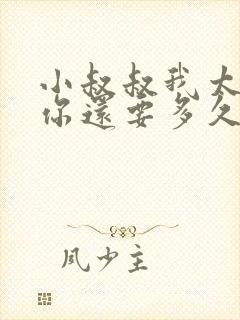 小叔叔我大
你還要多久
凤少主